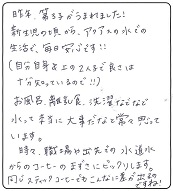 昨年、第3子がうまれました!
新生児の頃から、アクアスの水での
生活で、毎日安心です!!
(自分自身、上の2人で良さは
十分知っているので!!)
お風呂、離乳食、洗濯などなど
水って本当に大事だなぁと常々思って
います。
時々、職場や出先での水道水
からのコーヒーのまずさにビックリします。
同じスティックコーヒーでもこんなに差が出るの
ですね!